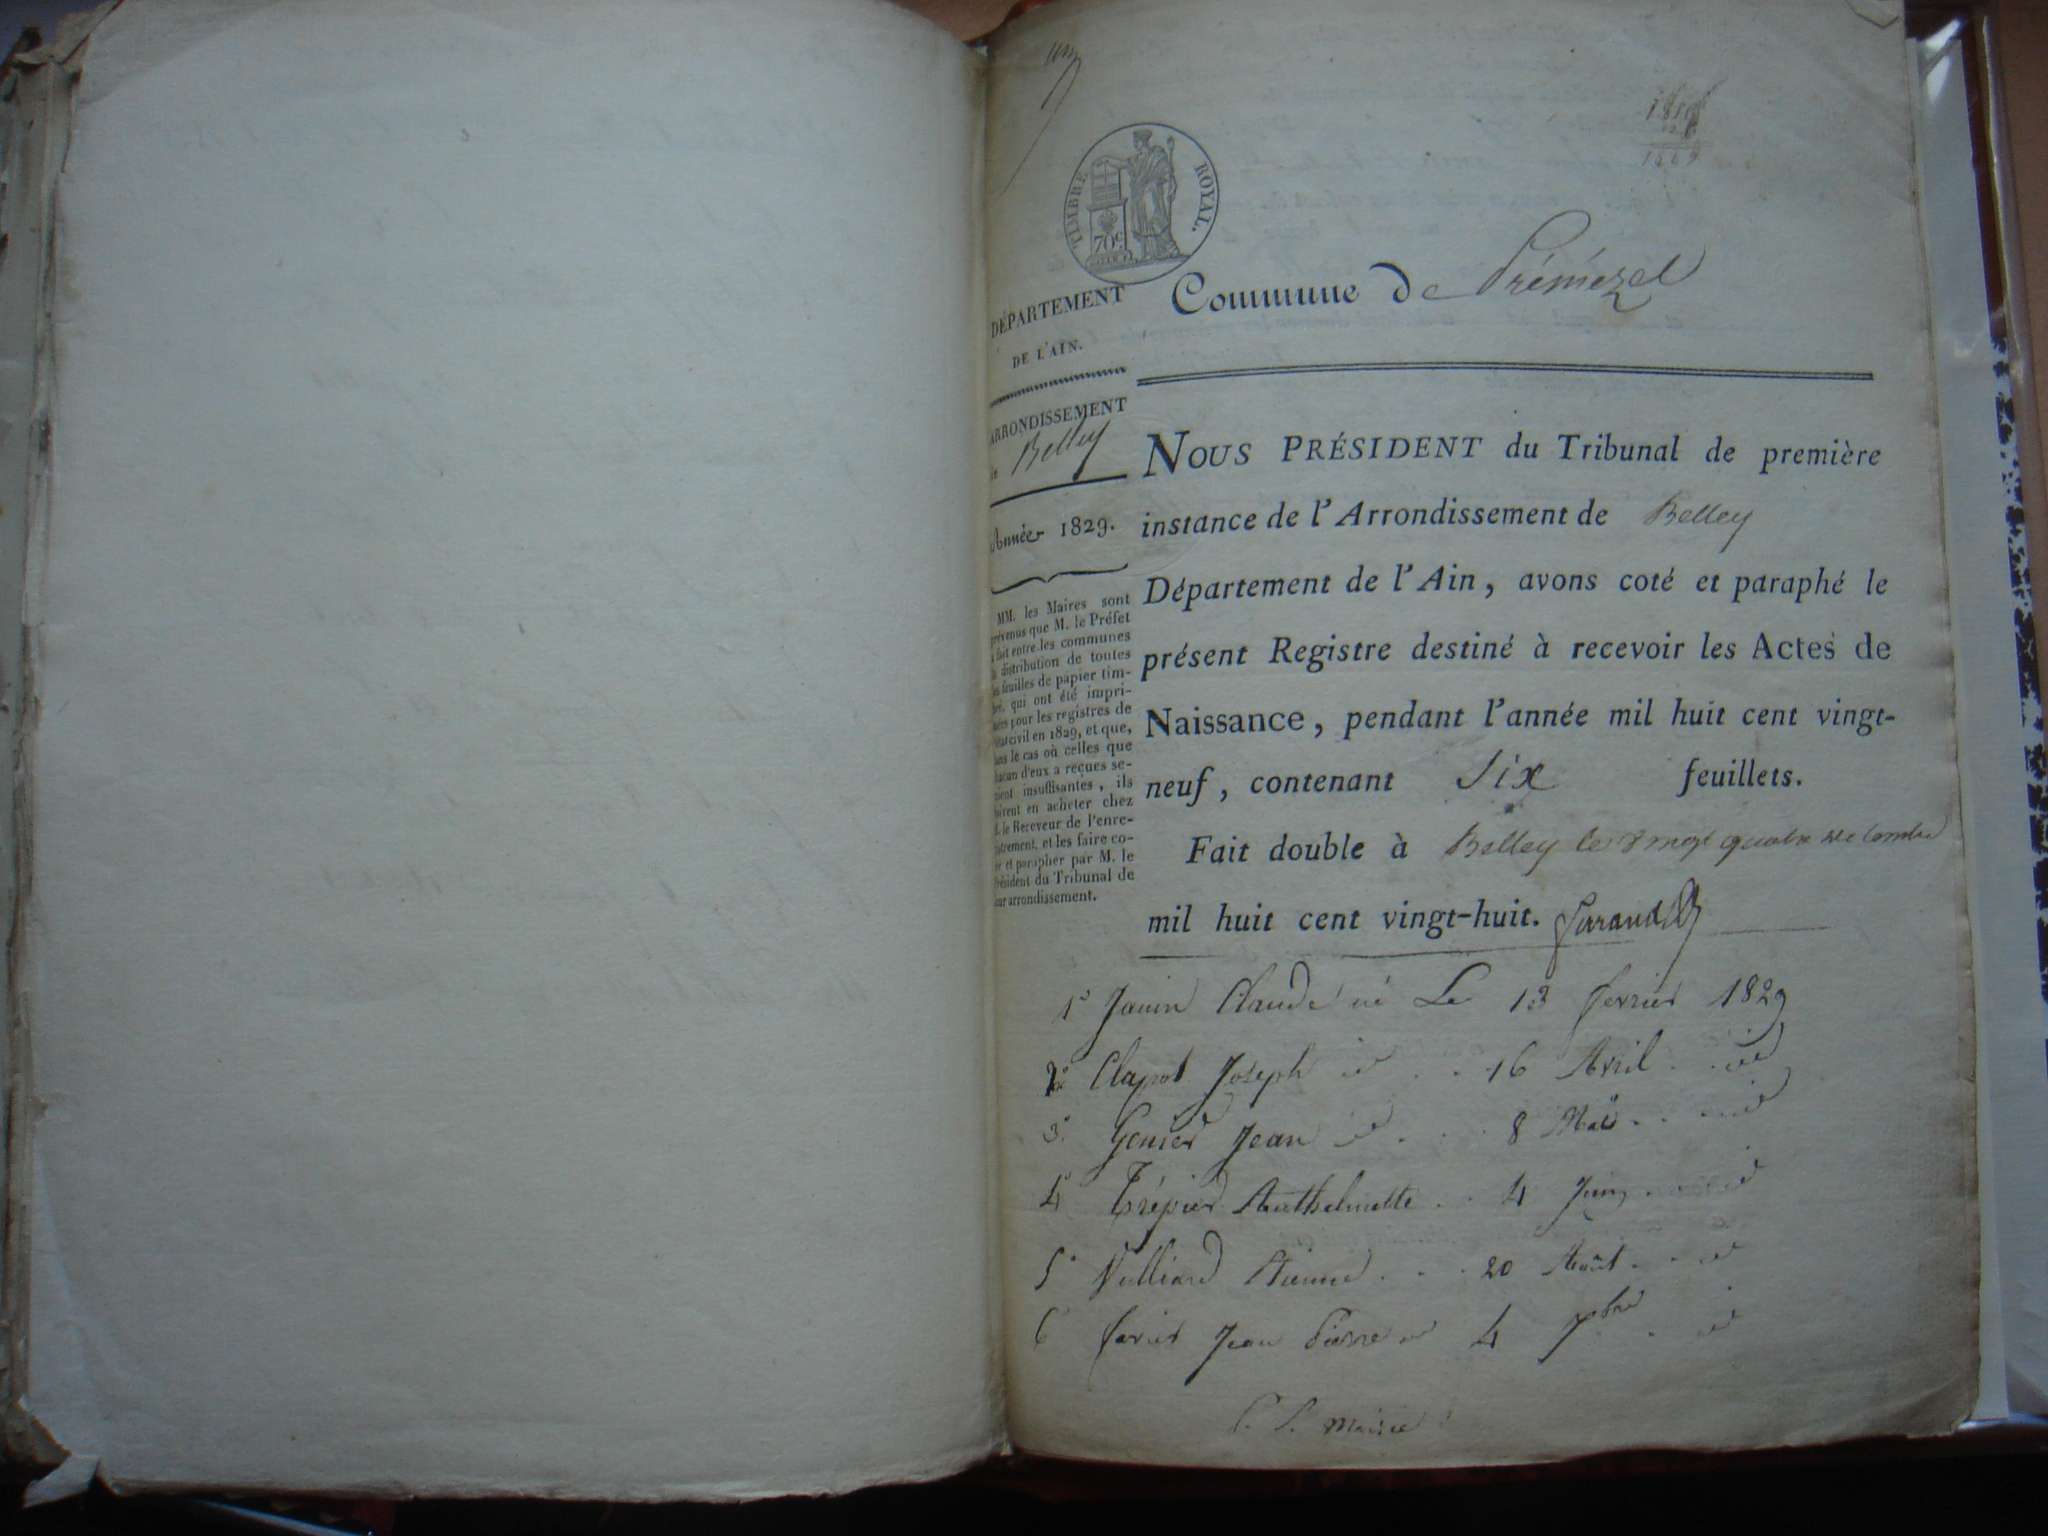 TIMBRE ROYAL.
70c
Commune de Prémezel
DÉPARTEMENT
DE L'AIN.
ARRONDISSEMENT
de Belley
Année 1829.
MM. les Maires sont
prévenus que M. le Préfet
a fait entre les communes
la distribution de toutes
les feuilles de papier tim-
bré, qui ont été impri-
mées pour les registres de
l'état civil en 1829, et que,
dans le cas où celles que
chacun d'eux a reçues se-
roient insuffisantes, ils
doivent en acheter chez
M. le Receveur de l'enre-
gistrement, et les faire co-
ter et parapher par M. le
Président du Tribunal de
leur arrondissement.
NOUS PRÉSIDENT du Tribunal de première
instance de l'Arrondissement de Belley
Département de l'Ain, avons coté et paraphé le
présent Registre destiné à recevoir les Actes de
Naissance, pendant l'année mil huit cent vingt-
neuf, contenant Six feuillets.
Fait double à Belley le vingt quatre décembre
mil huit cent vingt-huit.
1° Janin Claude né Le 13 fevrier 1829
2° Clapot Joseph id 16 Avril id
3° Genier Jean id 8 Mai id
4° Trépier Anthelmette 4 Juin id
5° Vulliard Etienne 20 Août id
6 favier Jean Pierre id 4 7bre id